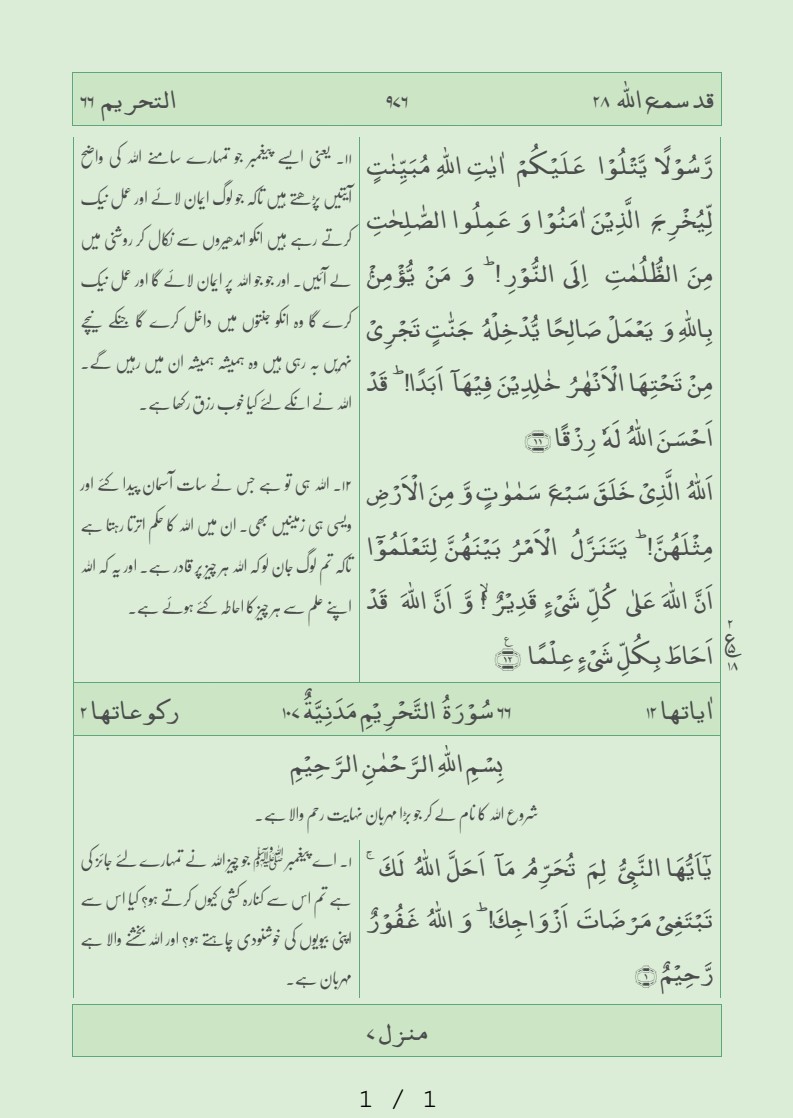 قد سمع الله ٢٨
٩٧٦
التحريم ٦٦
رَّسُوۡلًا يَّتۡلُوۡا عَلَيۡكُمۡ اٰيٰتِ اللّٰهِ مُبَيِّنٰتٍ
لِّيُخۡرِجَ الَّذِيۡنَ اٰمَنُوۡا وَ عَمِلُوا الصّٰلِحٰتِ
مِنَ الظُّلُمٰتِ اِلَى النُّوۡرِ‌ؕ وَ مَنۡ يُّؤۡمِنۡۢ
بِاللّٰهِ وَ يَعۡمَلۡ صَالِحًا يُّدۡخِلۡهُ جَنّٰتٍ تَجۡرِىۡ
مِنۡ تَحۡتِهَا الۡاَنۡهٰرُ خٰلِدِيۡنَ فِيۡهَاۤ اَبَدًا‌ؕ قَدۡ
اَحۡسَنَ اللّٰهُ لَهٗ رِزۡقًا ۝١١
۱۱۔ یعنی ایسے پیغمبر جو تمہارے سامنے اللہ کی واضح
آیتیں پڑھتے ہیں تاکہ جو لوگ ایمان لائے اور عمل نیک
کرتے رہے ہیں انکو اندھیروں سے نکال کر روشنی میں
لے آئیں۔ اور جو جو اللہ پر ایمان لائے گا اور عمل نیک
کرے گا وہ انکو جنتوں میں داخل کرے گا جنکے نیچے
نہریں بہ رہی ہیں وہ ہمیشہ ہمیشہ ان میں رہیں گے۔
اللہ نے انکے لئے کیا خوب رزق رکھا ہے۔
اَللّٰهُ الَّذِىۡ خَلَقَ سَبۡعَ سَمٰوٰتٍ وَّ مِنَ الۡاَرۡضِ
مِثۡلَهُنَّ‌ؕ يَتَنَزَّلُ الۡاَمۡرُ بَيۡنَهُنَّ لِتَعۡلَمُوۡۤا
اَنَّ اللّٰهَ عَلٰى كُلِّ شَىۡءٍ قَدِيۡرٌ ۙ وَّ اَنَّ اللّٰهَ قَدۡ
اَحَاطَ بِكُلِّ شَىۡءٍ عِلۡمًا ۝١٢
٢
ع
١٨
۱۲۔ اللہ ہی تو ہے جس نے سات آسمان پیدا کئے اور
ویسی ہی زمینیں بھی۔ ان میں اللہ کا حکم اترتا رہتا ہے
تاکہ تم لوگ جان لو کہ اللہ ہر چیز پر قادر ہے۔ اور یہ کہ اللہ
اپنے علم سے ہر چیز کا احاطہ کئے ہوئے ہے۔
اٰیاتها ١٢
٦٦ سُوۡرَةُ التَّحۡرِيۡمِ مَدَنِيَّةٌ ١٠٧
رکوعاتها ٢
بِسۡمِ اللّٰهِ الرَّحۡمٰنِ الرَّحِيۡمِ
شروع اللہ کا نام لے کر جو بڑا مہربان نہایت رحم والا ہے۔
يٰۤاَيُّهَا النَّبِىُّ لِمَ تُحَرِّمُ مَاۤ اَحَلَّ اللّٰهُ لَكَ‌ ۚ
تَبۡتَغِىۡ مَرۡضَاتَ اَزۡوَاجِكَ‌ؕ وَ اللّٰهُ غَفُوۡرٌ
رَّحِيۡمٌ ۝١
۱۔ اے پیغمبر ﷺ جو چیز اللہ نے تمہارے لئے جائز کی
ہے تم اس سے کنارہ کشی کیوں کرتے ہو؟ کیا اس سے
اپنی بیویوں کی خوشنودی چاہتے ہو؟ اور اللہ بخشنے والا ہے
مہربان ہے۔
منزل ٧
1 / 1